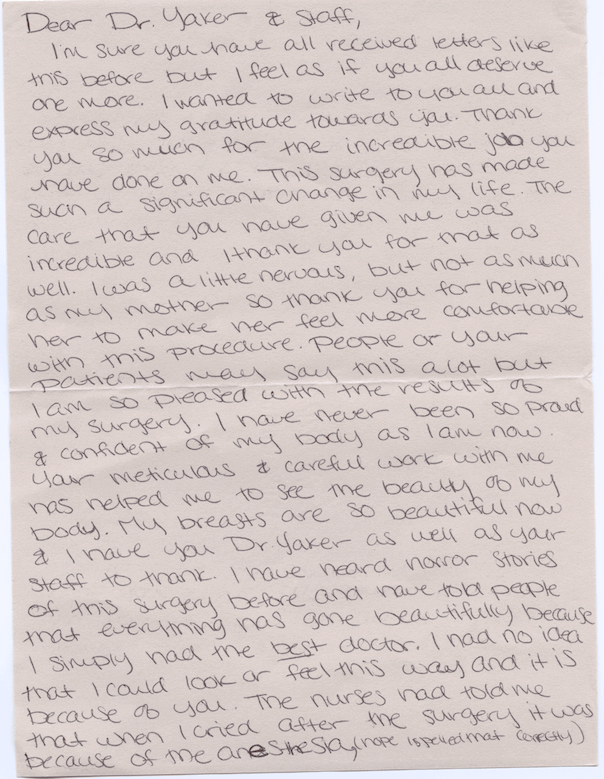 Dear Dr. Yaker & Staff,
I'm sure you have all received letters like
this before but I feel as if you all deserve
one more. I wanted to write to you all and
express my gratitude towards you. Thank
you so much for the incredible job you
have done on me. This surgery has made
such a significant change in my life. The
care that you have given me was
incredible and I thank you for that as
well. I was a little nervous, but not as much
as my mother so thank you for helping
her to make her feel more comfortable
with this procedure. People or your
patients may say this alot but
I am so pleased with the results of
my surgery. I have never been so proud
& confident of my body as I am now.
Your meticulous & careful work with me
has helped me to see the beauty of my
body. My breasts are so beautiful now
& I have you Dr. Yaker as well as your
staff to thank. I have heard horror stories
of this surgery before and have told people
that everything has gone beautifully because
I simply had the best doctor. I had no idea
that I could look or feel this way and it is
because of you. The nurses had told me
that when I cried after the surgery it was
because of the anesthesia, (hope i spelled that correctly)